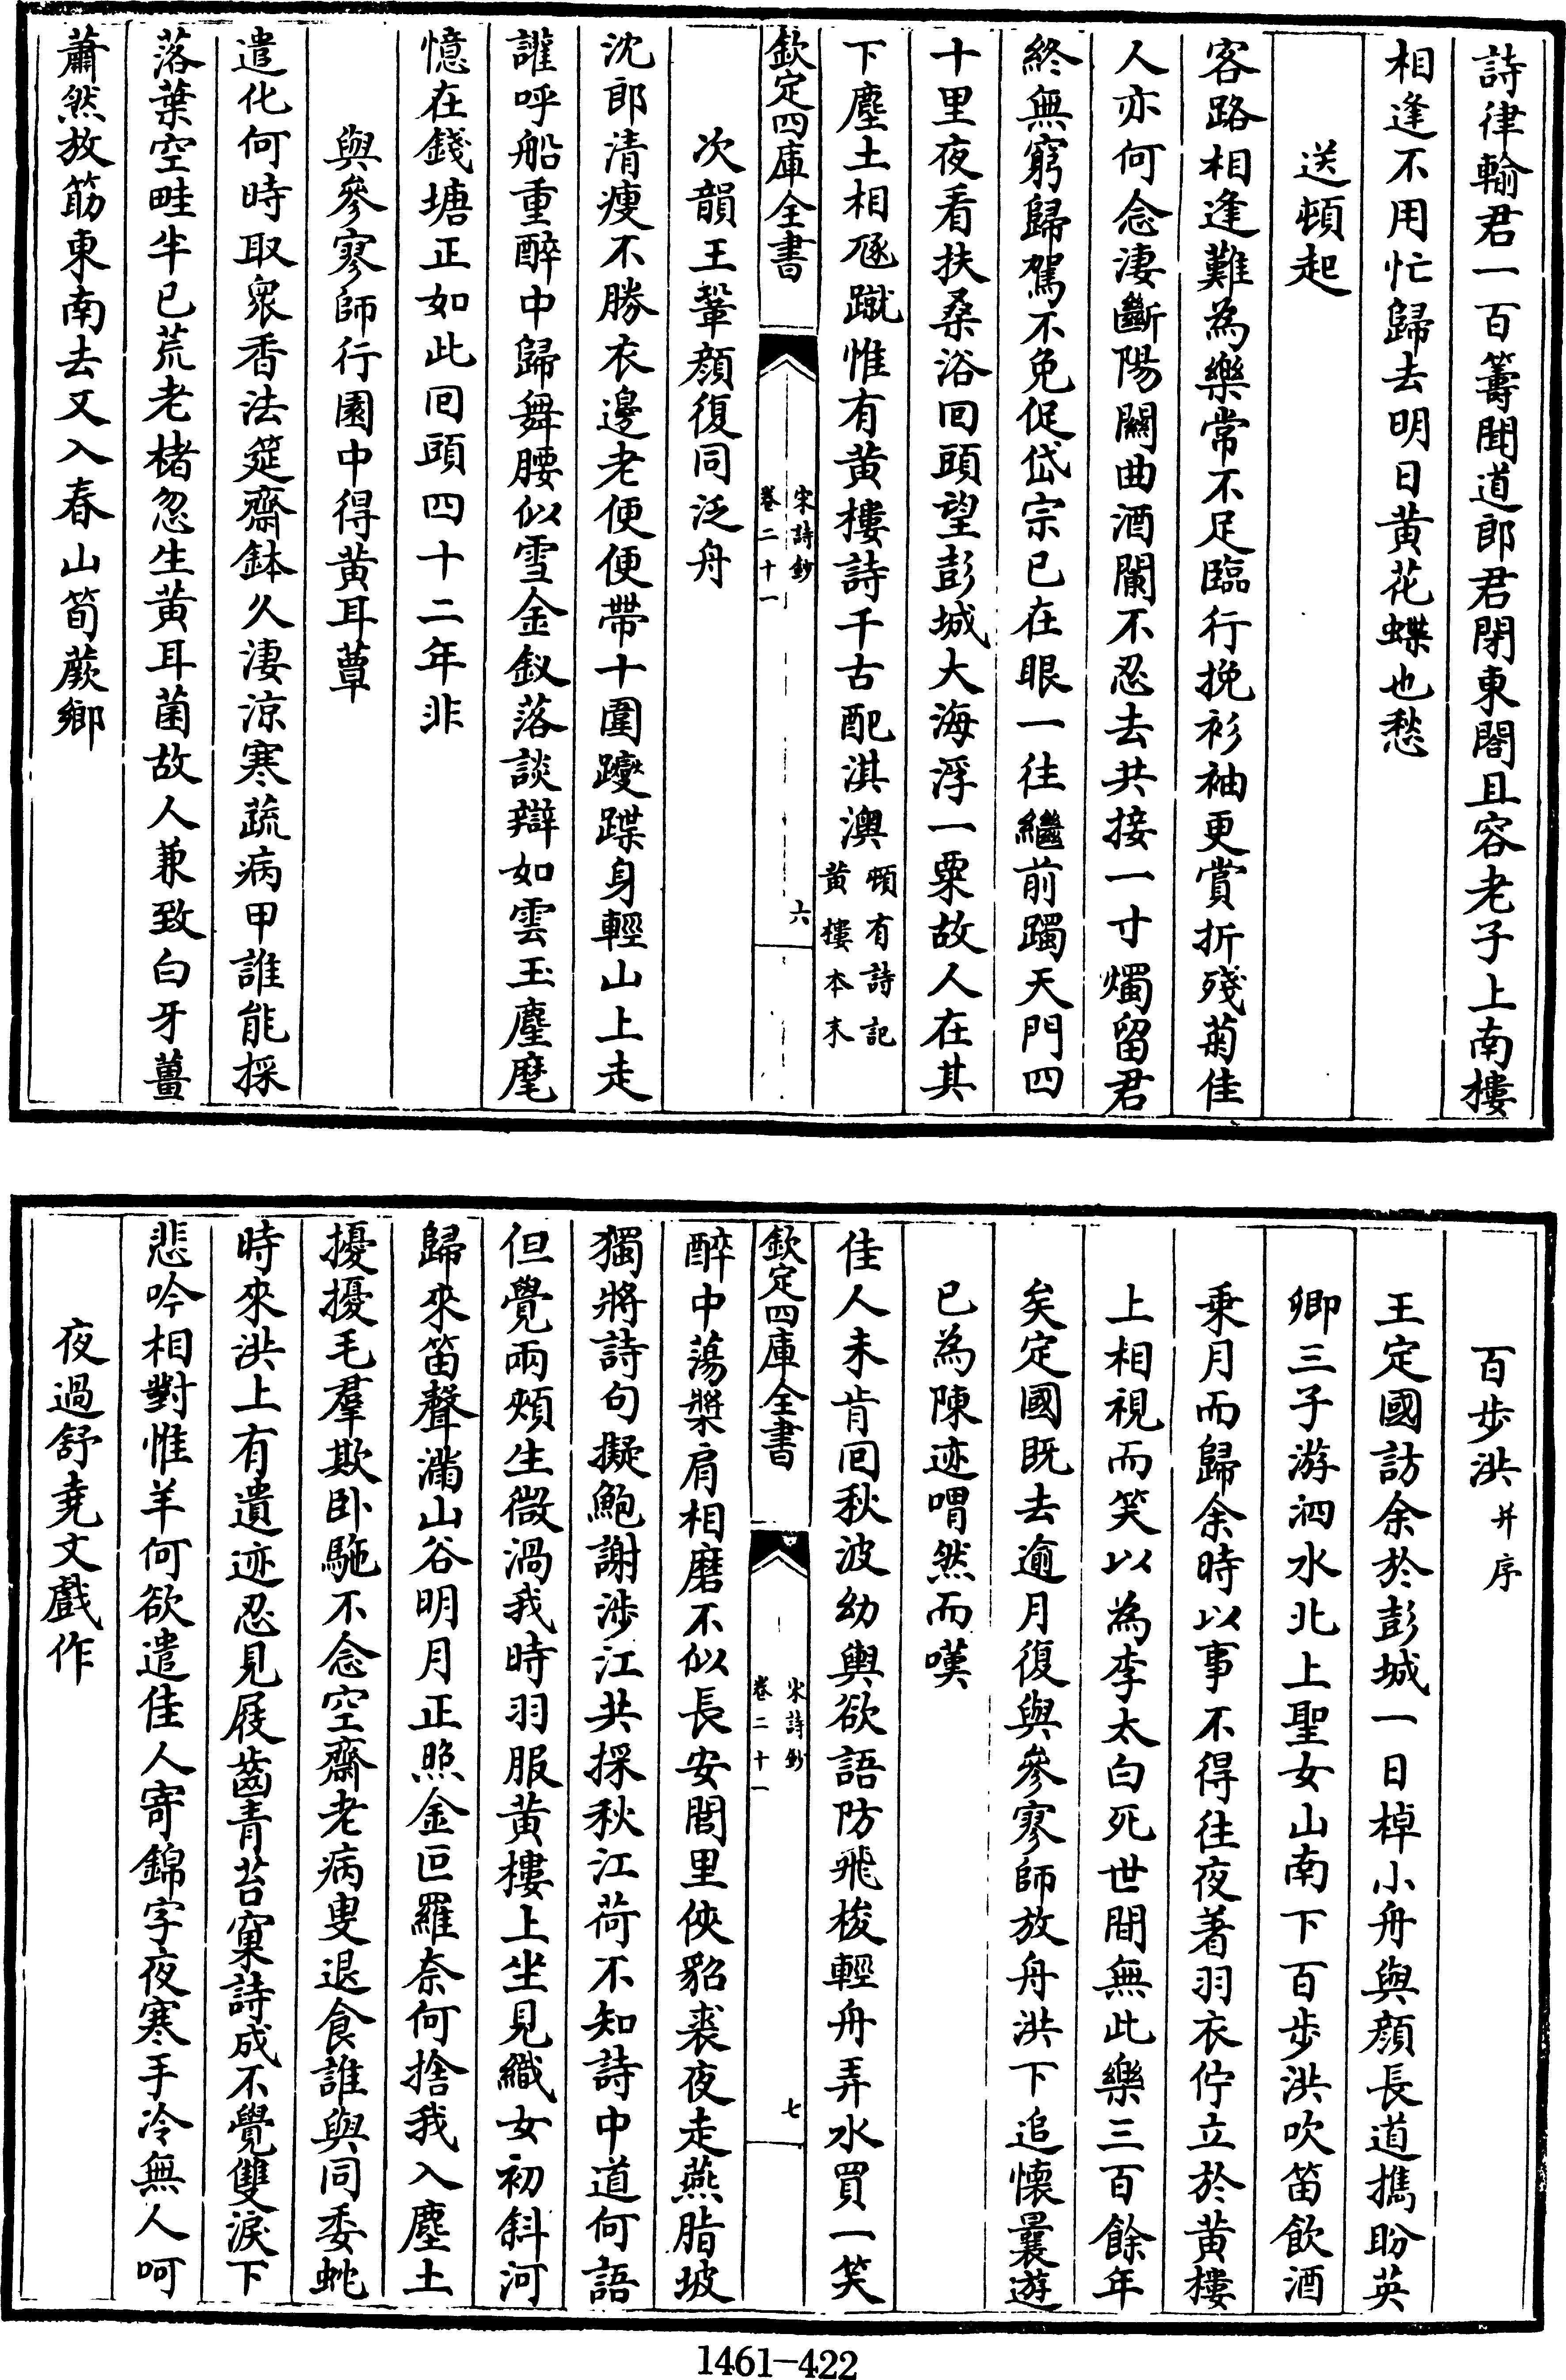 詩律輸君一百籌聞道郎君閉東閤且容老子上南樓
相逢不用忙歸去明日黄花蝶也愁
送頓起
客路相逢難為樂常不足臨行挽衫袖更賞折殘菊佳
人亦何念淒斷陽關曲酒闌不忍去共接一寸燭留君
終無窮歸駕不免促岱宗已在眼一往繼前躅天門四
十里夜看扶桑浴回頭望彭城大海浮一粟故人在其
下塵土相豗蹴惟有黄樓詩千古配淇澳頓有詩記
黄樓本末
欽定四庫全書
宋詩鈔
卷二十一
六
次韻王鞏顔復同泛舟
沈郎清瘦不勝衣邊老便便帶十圍躞蹀身輕山上走
讙呼船重醉中歸舞腰似雪金釵落談辯如雲玉麈麾
憶在錢塘正如此回頭四十二年非
與參寥師行園中得黄耳蕈
遣化何時取衆香法筵齋鉢久淒涼寒蔬病甲誰能採
落葉空畦半已荒老楮忽生黄耳菌故人兼致白牙薑
蕭然放筯東南去又入春山筍蕨鄉
百步洪并序
王定國訪余於彭城一日棹小舟與顔長道攜盼英
卿三子游泗水北上聖女山南下百步洪吹笛飲酒
乘月而歸余時以事不得往夜著羽衣佇立於黄樓
上相視而笑以為李太白死世間無此樂三百餘年
矣定國既去逾月復與參寥師放舟洪下追懷曩遊
已為陳迹喟然而嘆
佳人未肯回秋波幼輿欲語防飛梭輕舟弄水買一笑
欽定四庫全書
宋詩鈔
卷二十一
七
醉中蕩槳肩相磨不似長安閭里俠貂裘夜走燕脂坡
獨將詩句擬鮑謝涉江共採秋江荷不知詩中道何語
但覺兩頰生微渦我時羽服黄樓上坐見織女初斜河
歸來笛聲滿山谷明月正照金叵羅奈何捨我入塵土
擾擾毛羣欺卧駞不念空齋老病叟退食誰與同委蛇
時來洪上有遺迹忍見屐齒青苔窠詩成不覺雙淚下
悲吟相對惟羊何欲遣佳人寄錦字夜寒手冷無人呵
夜過舒堯文戲作
1461-422